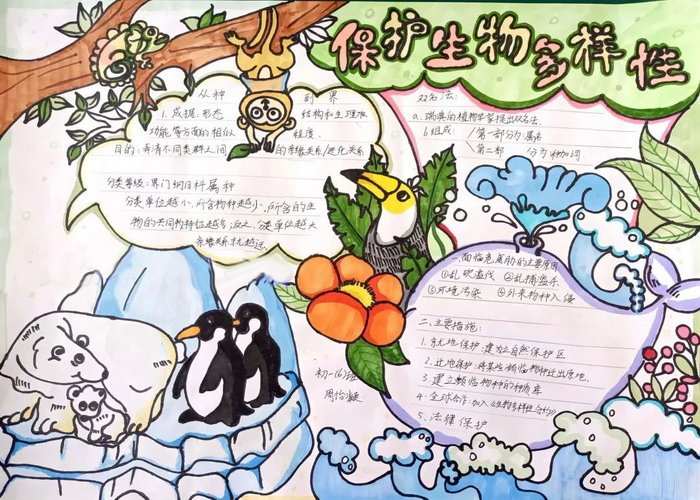 保护生物多样性
从种 到界
1. 成据:形态 结构和生理
功能等方面的相似 程度.
目的:弄清不同类群之间 的亲缘关系/进化关系
分类等级:界门纲目科属种
分类单位越小,所含物种越小,所含的生
物的共同特征越多,反之,分类单位越大
亲缘关系就越远.
双名法:
a. 瑞典的植物学家提出双名法.
b. 组成: 第一部分为属名
第二部 分为种加词.
一、面临危 胁的主要原因
①乱砍滥伐 ②乱捕滥杀
③环境污染 ④外来物种入侵
二、主要措施:
1. 就地保护:建立自然保护区
2. 迁地保护:将某些濒临物种迁出原地.
3. 建立濒临物种的种质库
4. 全球合作:加入《生物多样性公约》
5. 法律保护
初一(6)班
周怡凝